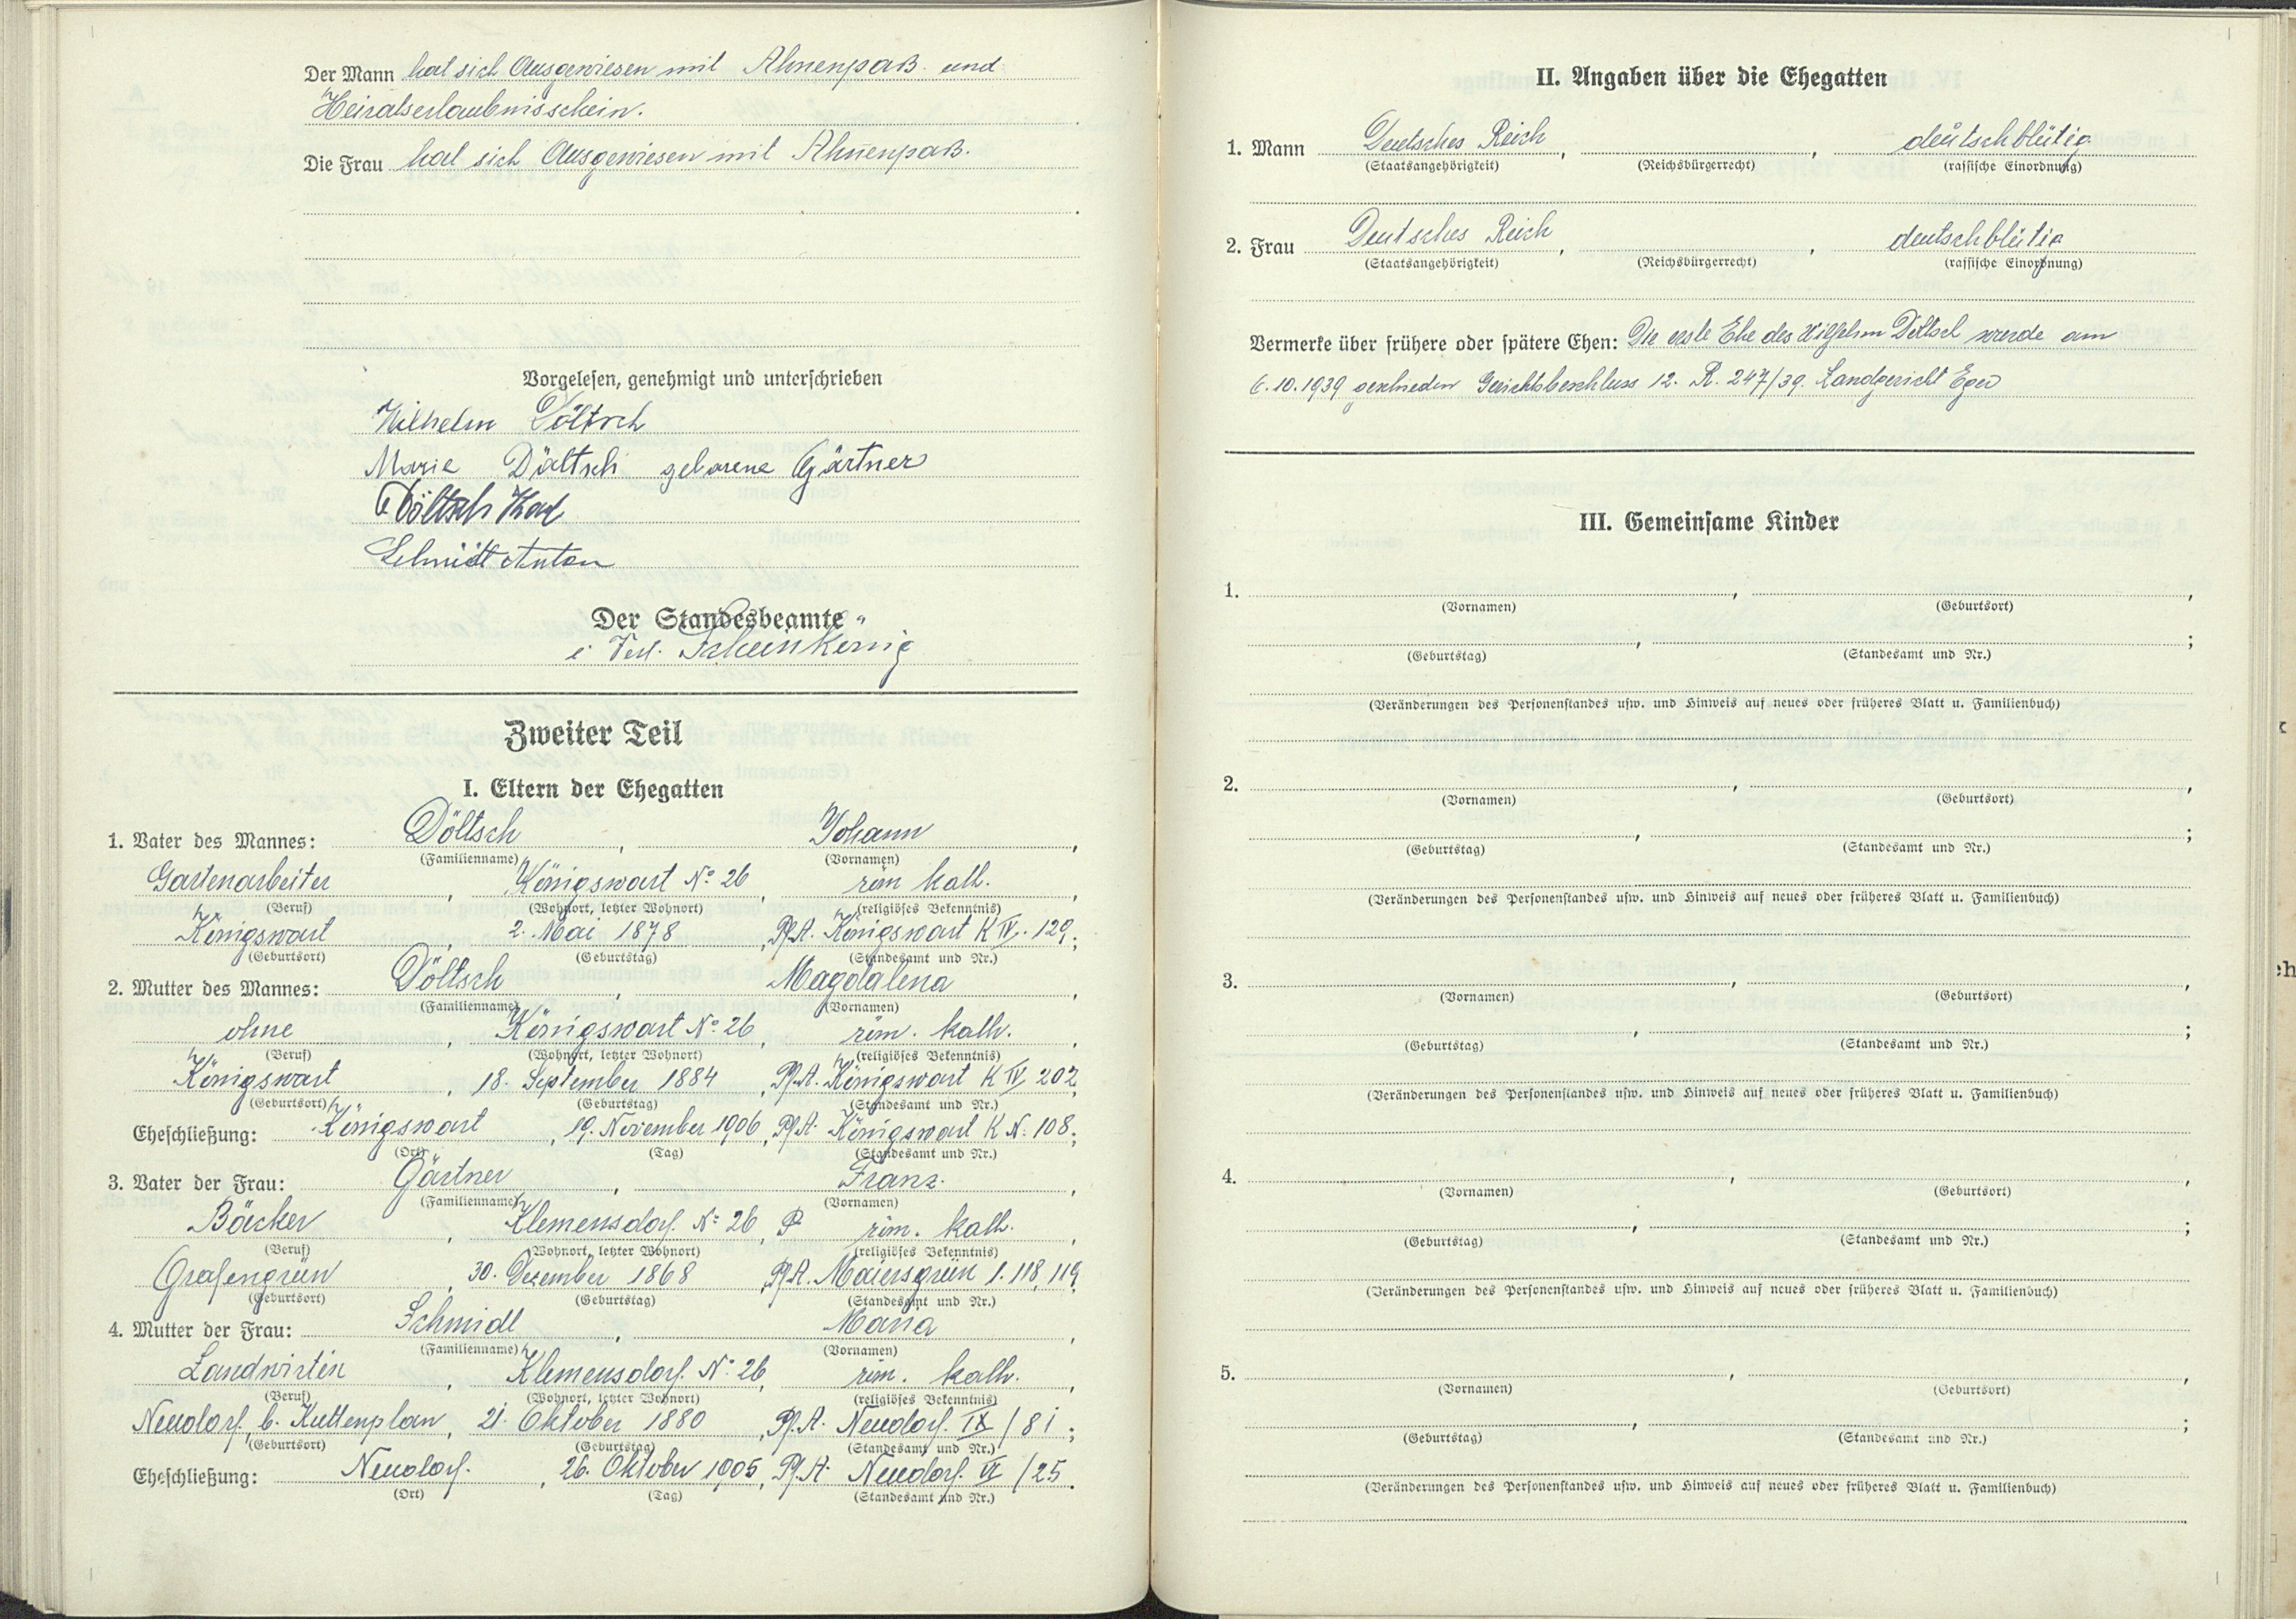 Der Mann hat sich Ausgewiesen mit Ahnenpaß und
Heiratserlaubnisschein.
Die Frau hat sich Ausgewiesen mit Ahnenpaß.
Vorgelesen, genehmigt und unterschrieben
Wilhelm Döltsch
Marie Döltsch geborene Gärtner
Döltsch Karl
Schmidt Anton
Der Standesbeamte
i. Vert. Scheinkönig
Zweiter Teil
I. Eltern der Ehegatten
1. Vater des Mannes: Döltsch, Johann,
(Familienname) (Vornamen)
Gartenarbeiter, Königswart No. 26, röm kath.,
(Beruf) (Wohnort, letzter Wohnort) (religiöses Bekenntnis)
Königswart, 2. Mai 1878, Pf.A. Königswart K IV. 129;
(Geburtsort) (Geburtstag) (Standesamt und Nr.)
2. Mutter des Mannes: Döltsch, Magdalena,
(Familienname) (Vornamen)
ohne, Königswart No. 26, röm. kath.,
(Beruf) (Wohnort, letzter Wohnort) (religiöses Bekenntnis)
Königswart, 18. September 1884, Pf.A. Königswart K IV 202,
(Geburtsort) (Geburtstag) (Standesamt und Nr.)
Eheschließung: Königswart, 19. November 1906, Pf.A. Königswart K N. 108;
(Ort) (Tag) (Standesamt und Nr.)
3. Vater der Frau: Gärtner, Franz.,
(Familienname) (Vornamen)
Bäcker, Klemensdorf. No. 26, röm. kath.,
(Beruf) (Wohnort, letzter Wohnort) (religiöses Bekenntnis)
Grafengrün, 30. Dezember 1868, Pf.A. Maiersgrün 1. 118, 119,
(Geburtsort) (Geburtstag) (Standesamt und Nr.)
4. Mutter der Frau: Schmidl, Maria,
(Familienname) (Vornamen)
Landwirtin, Klemensdorf. No. 26, röm. kath.,
(Beruf) (Wohnort, letzter Wohnort) (religiöses Bekenntnis)
Neudorf, b. Kuttenplan, 21. Oktober 1880, Pf.A. Neudorf. IX / 81;
(Geburtsort) (Geburtstag) (Standesamt und Nr.)
Eheschließung: Neudorf., 26. Oktober 1905, Pf.A. Neudorf. VI / 25.
(Ort) (Tag) (Standesamt und Nr.)
II. Angaben über die Ehegatten
1. Mann Deutsches Reich, , deutschblütig
(Staatsangehörigkeit) (Reichsbürgerrecht) (rassische Einordnung)
2. Frau Deutsches Reich, , deutschblütig
(Staatsangehörigkeit) (Reichsbürgerrecht) (rassische Einordnung)
Vermerke über frühere oder spätere Ehen: Die erste Ehe des Wilhelm Döltsch wurde am
6.10.1939 geschieden Gerichtsbeschluss 12. R. 247/39. Landgericht Eger
III. Gemeinsame Kinder
1. , ,
(Vornamen) (Geburtsort)
, ;
(Geburtstag) (Standesamt und Nr.)
(Veränderungen des Personenstandes usw. und Hinweis auf neues oder früheres Blatt u. Familienbuch)
2. , ,
(Vornamen) (Geburtsort)
, ;
(Geburtstag) (Standesamt und Nr.)
(Veränderungen des Personenstandes usw. und Hinweis auf neues oder früheres Blatt u. Familienbuch)
3. , ,
(Vornamen) (Geburtsort)
, ;
(Geburtstag) (Standesamt und Nr.)
(Veränderungen des Personenstandes usw. und Hinweis auf neues oder früheres Blatt u. Familienbuch)
4. , ,
(Vornamen) (Geburtsort)
, ;
(Geburtstag) (Standesamt und Nr.)
(Veränderungen des Personenstandes usw. und Hinweis auf neues oder früheres Blatt u. Familienbuch)
5. , ,
(Vornamen) (Geburtsort)
, ;
(Geburtstag) (Standesamt und Nr.)
(Veränderungen des Personenstandes usw. und Hinweis auf neues oder früheres Blatt u. Familienbuch)